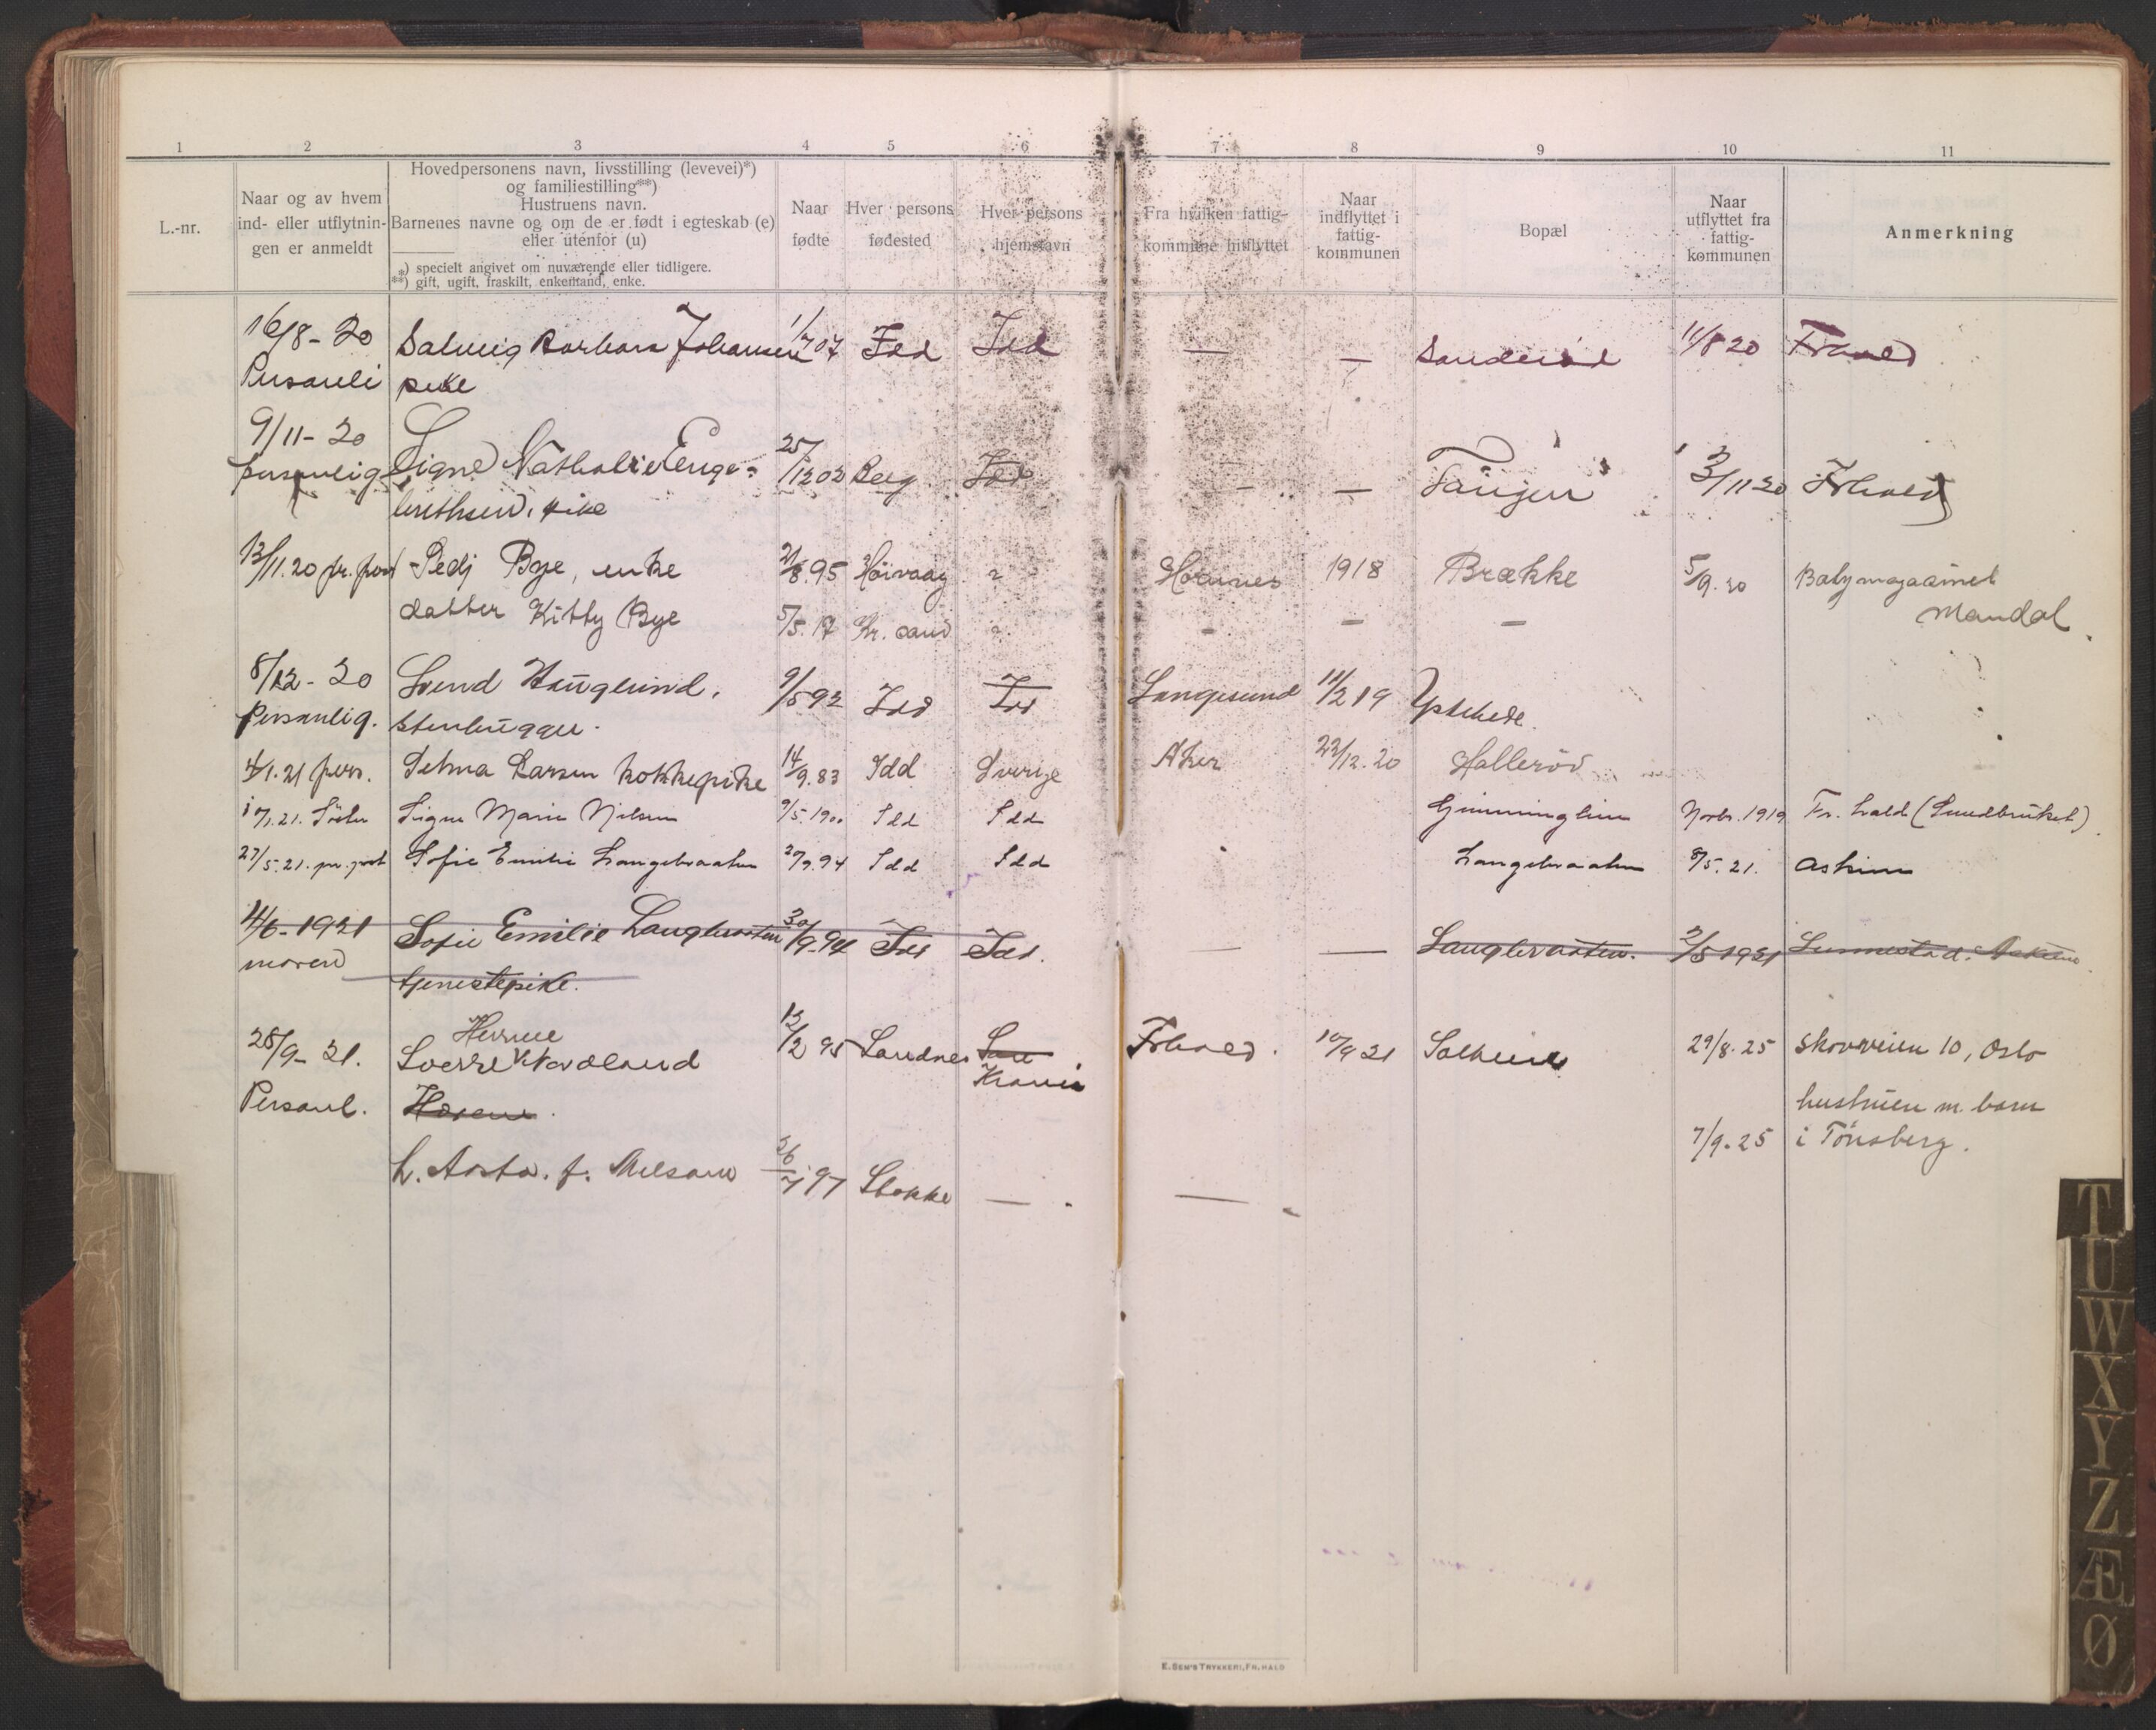 1 2 3 4 5 6 7 8 9 10 11
L.-nr.
Naar og av hvem
ind- eller utflytnin-
gen er anmeldt
Hovedpersonens navn, livsstilling (levevei)*)
og familiestilling**)
Hustruens navn.
Barnenes navne og om de er født i egteskab (e)
eller utenfor (u)
*) specielt angivet om nuværende eller tidligere.
**) gift, ugift, fraskilt, enkemand, enke.
Naar
fødte
Hver persons
fødested
Hver persons
hjemstavn
Fra hvilken fattig-
kommune hitflyttet
Naar
indflyttet i
fattig-
kommunen
Bopæl
Naar
utflyttet fra
fattig-
kommunen
Anmerkning
16/8-20 Solveig Barbara Johansen 1/7 07 Idd Idd — — 11/8 20 Frhald
pike
9/11-20
personlig Signe Nathalie Enge- 25/12 02 Berg Idd — — Tangen 3/11 20 Frhald
brethsen, pike
13/11.20 pr. post Pedj Bye, enke 21/8.95 Höivaag ? Hornnes 1918 Brække 5/9.20 Babymagasinet
datter Kitty Bye 5/5.17 Kr. sand ? — — — Mandal.
8/12-20 Svend Hauglund, 9/5 92 Idd Idd Langesund 11/2 19 Ystehede.
Personlig. stenhugger.
4/1.21 pers. Selma Larsen kokkepike 14/9.83 Idd Sverige Aker 22/12.20 Halleröd
17/1.21. Signe Marie Nilsen 9/5.1900 Idd Idd Novbr. 1919 Fr.hald
27/5.21. pr. post Sofie Emilie Langebraaten 27/9.94 Idd Idd Langebraaten 8/5.21. Askim
4/6-1921 Sofie Emilie Langbraaten 30/9-94 Idd Idd. — — Langbraaten. 2/5 1921 Askim.
moren tjenestepike.
Herme
28/9-21. Sverre Nordland 12/2 95 Sandnes Frhald. 10/9 21 Solheim 29/8.25 Skovveien 10, Oslo
Personl. hustruen m. barn
7/9.25 i Tönsberg.
h. Asta. f. Melsom 26/7 97 Stokke — —
E. SEM'S TRYKKERI, FR.HALD
T
U
W
X
Y
Z
Æ
Ø